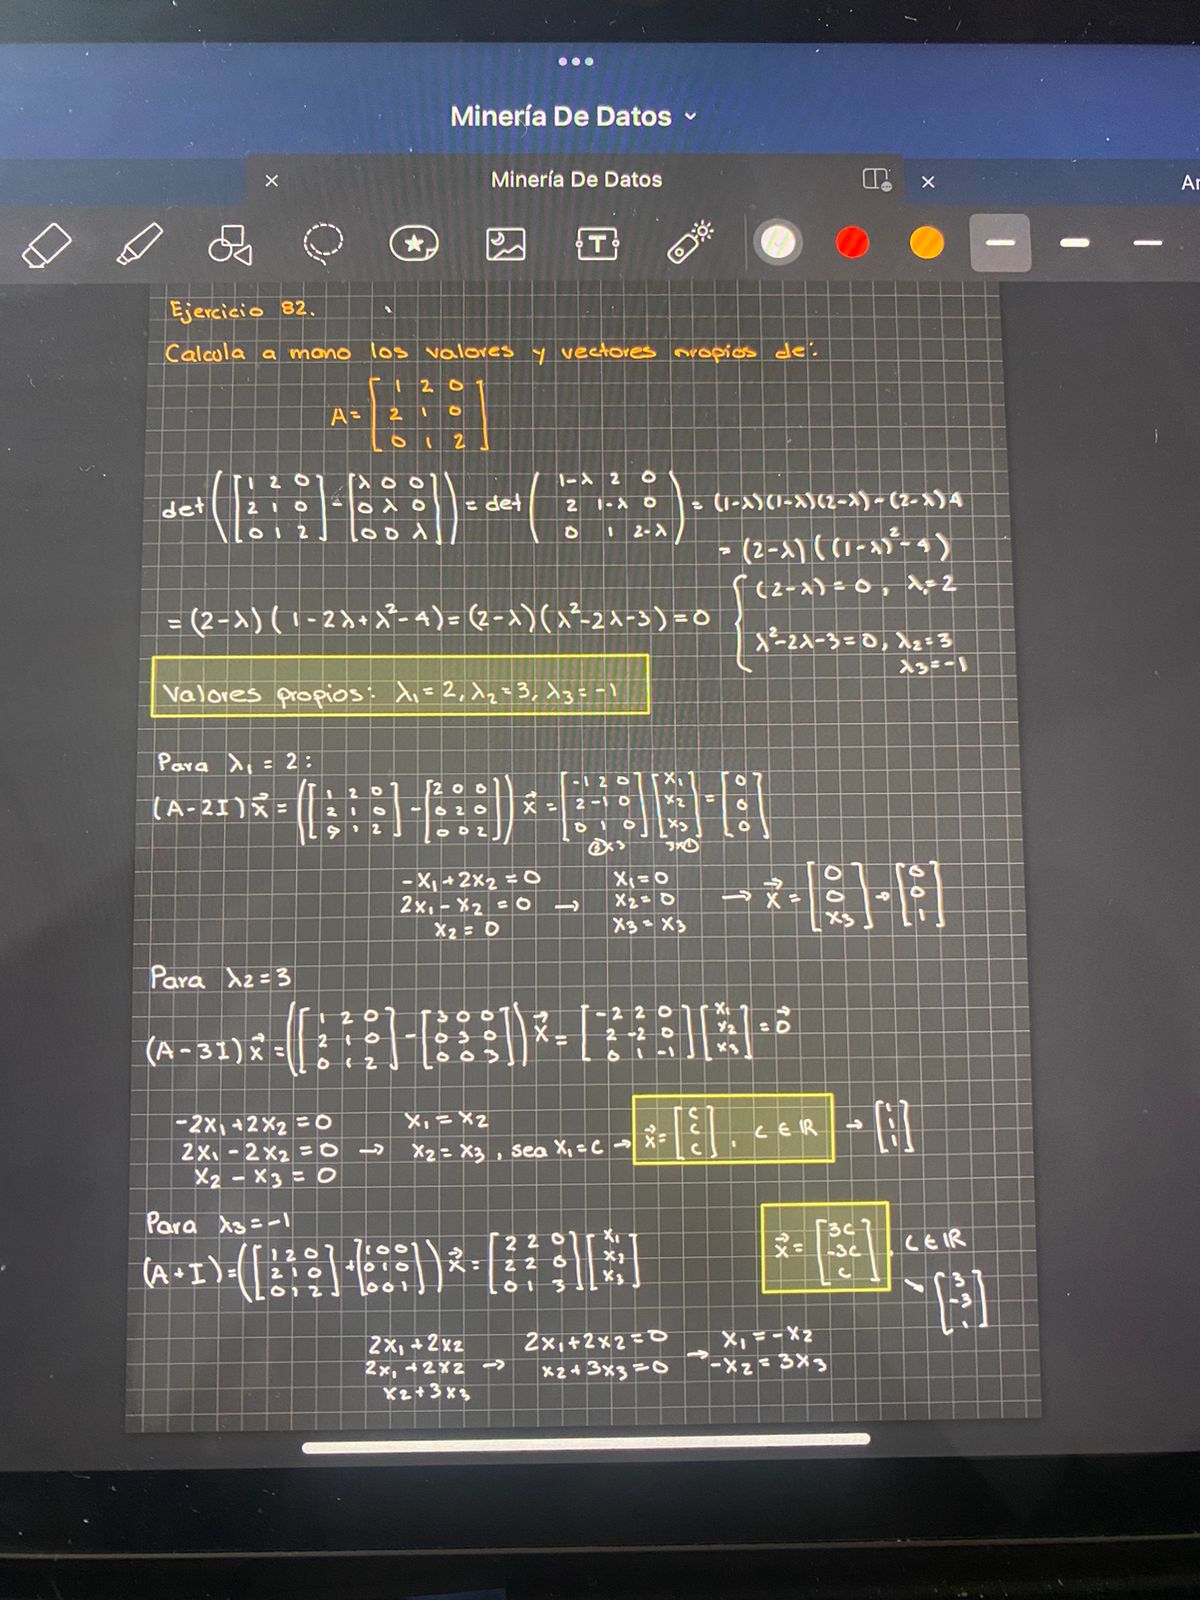 Minería De Datos
Minería De Datos
Ar
T
Ejercicio 82.
Calcula a mano los valores y vectores propios de:
A = [1 2 0
2 1 0
0 1 2]
det([1 2 0; 2 1 0; 0 1 2] - [λ 0 0; 0 λ 0; 0 0 λ]) = det(1-λ 2 0; 2 1-λ 0; 0 1 2-λ) = (1-λ)(1-λ)(2-λ) - (2-λ)4
= (2-λ)((1-λ)²-4)
= (2-λ)(1-2λ+λ²-4) = (2-λ)(λ²-2λ-3) = 0 { (2-λ) = 0, λ₁=2
λ²-2λ-3=0, λ₂=3
λ₃=-1
Valores propios: λ₁ = 2, λ₂ = 3, λ₃ = -1
Para λ₁ = 2:
(A-2I)x⃗ = ([1 2 0; 2 1 0; 0 1 2] - [2 0 0; 0 2 0; 0 0 2]) x⃗ = [-1 2 0; 2 -1 0; 0 1 0][x₁; x₂; x₃] = [0; 0; 0]
③x3 3x①
-x₁+2x₂ = 0 x₁ = 0
2x₁-x₂ = 0 → x₂ = 0 → x⃗ = [0; 0; x₃] → [0; 0; 1]
x₂ = 0 x₃ = x₃
Para λ₂ = 3
(A-3I)x⃗ = ([1 2 0; 2 1 0; 0 1 2] - [3 0 0; 0 3 0; 0 0 3]) x⃗ = [-2 2 0; 2 -2 0; 0 1 -1][x₁; x₂; x₃] = 0⃗
-2x₁+2x₂ = 0 x₁ = x₂
2x₁-2x₂ = 0 → x₂ = x₃, sea x₁ = c → x⃗ = [c; c; c], c ∈ ℝ → [1; 1; 1]
x₂ - x₃ = 0
Para λ₃ = -1
(A+I) = ([1 2 0; 2 1 0; 0 1 2] + [1 0 0; 0 1 0; 0 0 1]) x⃗ = [2 2 0; 2 2 0; 0 1 3][x₁; x₂; x₃]
x⃗ = [3c; -3c; c], c ∈ ℝ
↘ [3; -3; 1]
2x₁+2x₂ 2x₁+2x₂=0 x₁ = -x₂
2x₁+2x₂ → x₂+3x₃=0 → -x₂ = 3x₃
x₂+3x₃